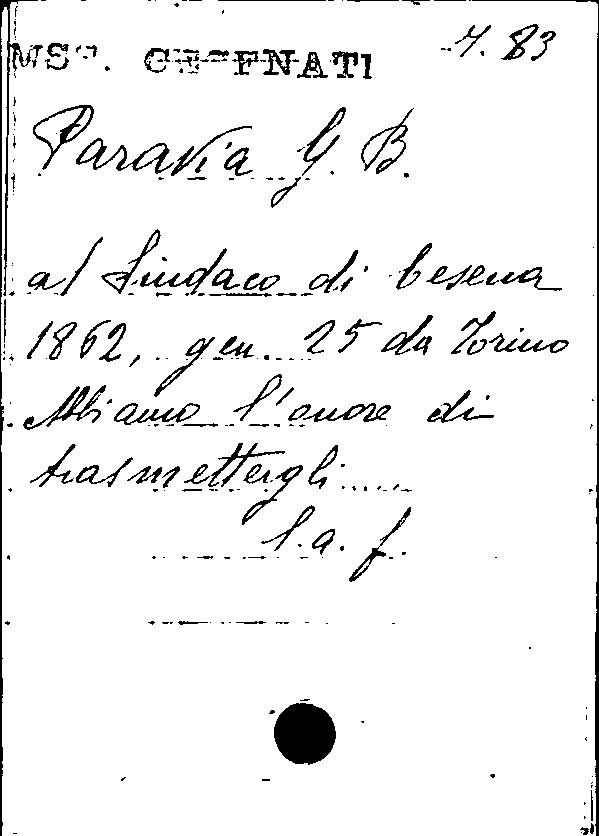 MSS. CESENATI 7. 83
Paravia G. B.
al Sindaco di Cesena
1862, gen. 25 da Torino
Abbiamo l'onore di
trasmettergli.....
l. a. f.